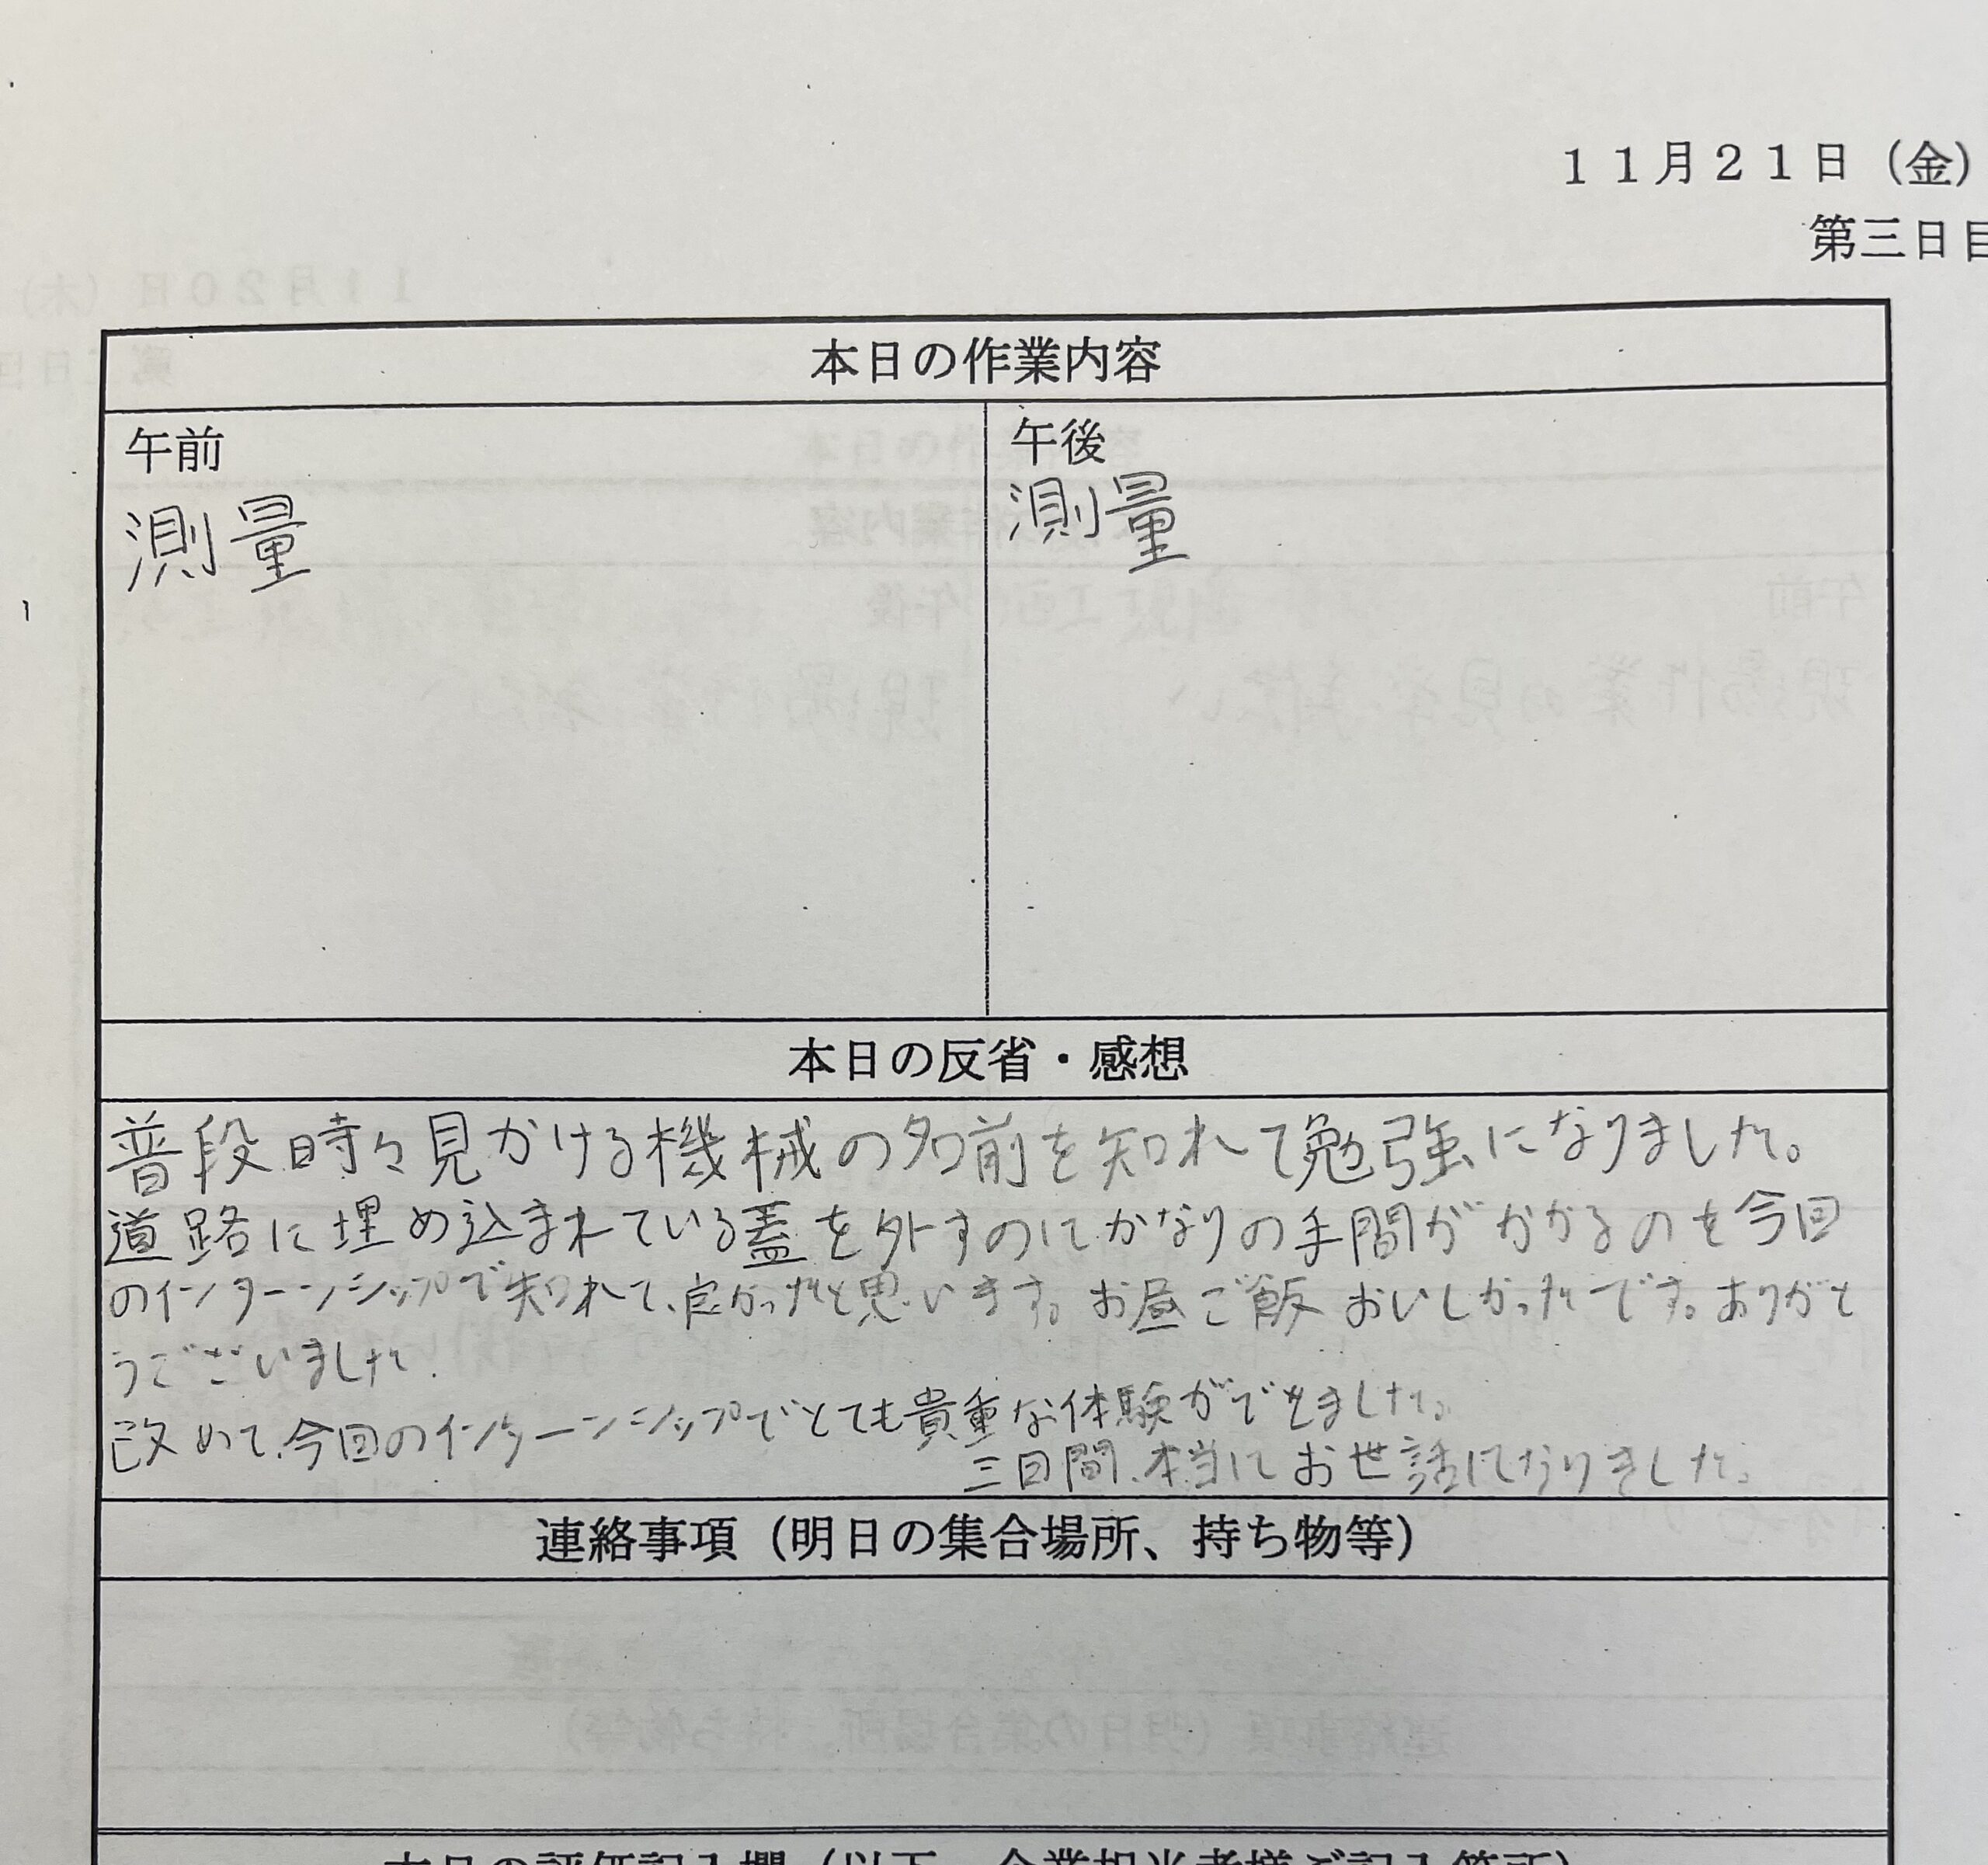 11月21日（金）
第三日目
本日の作業内容
午前
午後
測量
測量
本日の反省・感想
普段時々見かける機械の名前を知れて勉強になりました。
道路に埋め込まれている蓋を外すのにかなりの手間がかかるのを今回
のインターンシップで知れて、良かったと思います。お昼ご飯おいしかったです。ありがと
うございました.
改めて、今回のインターンシップでとても貴重な体験ができました。
三日間、本当にお世話になりました。
連絡事項（明日の集合場所、持ち物等）
本日の評価記入欄（以下、企業担当者様ご記入箇所）